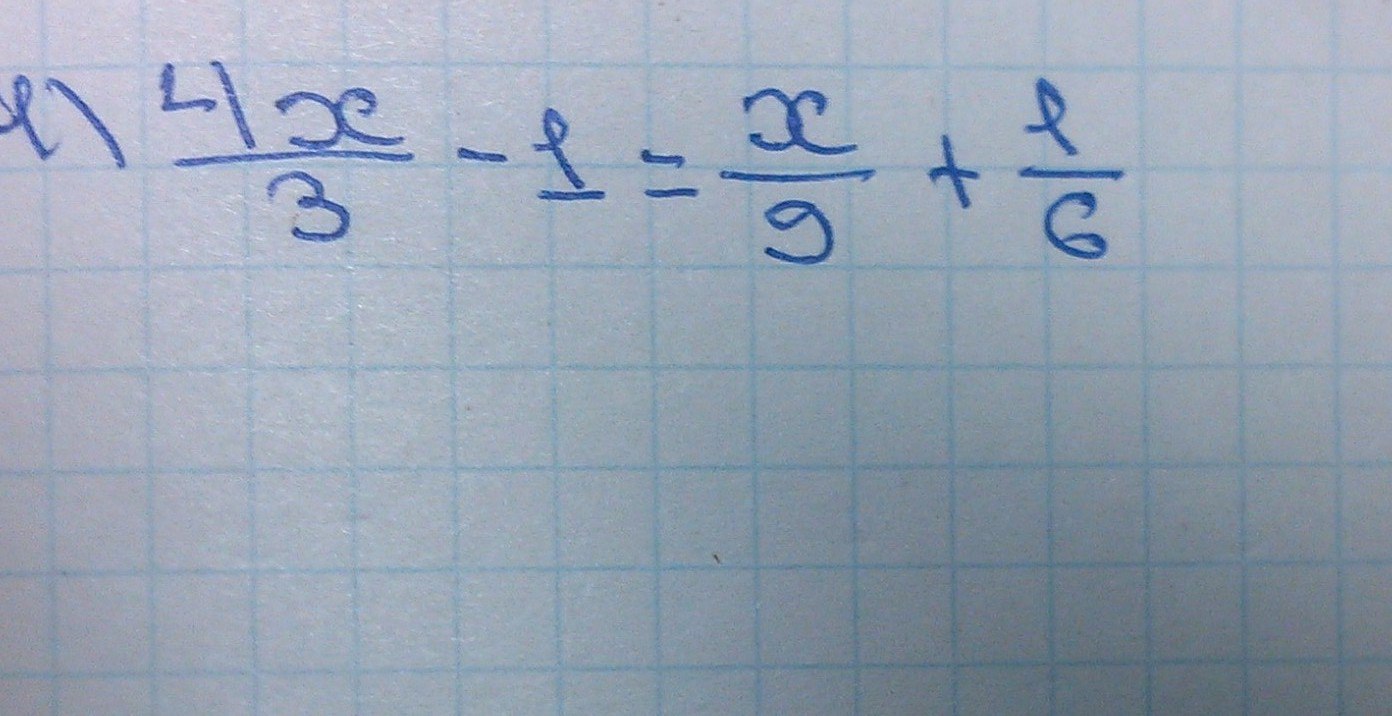 4) 4x/3 - 1 = x/9 + 1/6